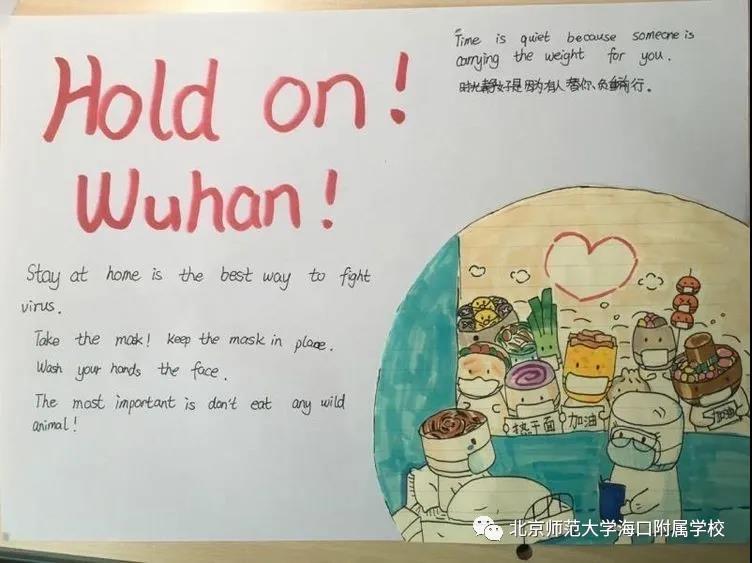 Hold on!
Wuhan!
Time is quiet because someone is
carrying the weight for you.
时光静好是因为有人替你负重前行。
Stay at home is the best way to fight
virus.
Take the mask! Keep the mask in place.
Wash your hands the face.
The most important is don't eat any wild
animal!
热干面
加油
加油
北京师范大学海口附属学校